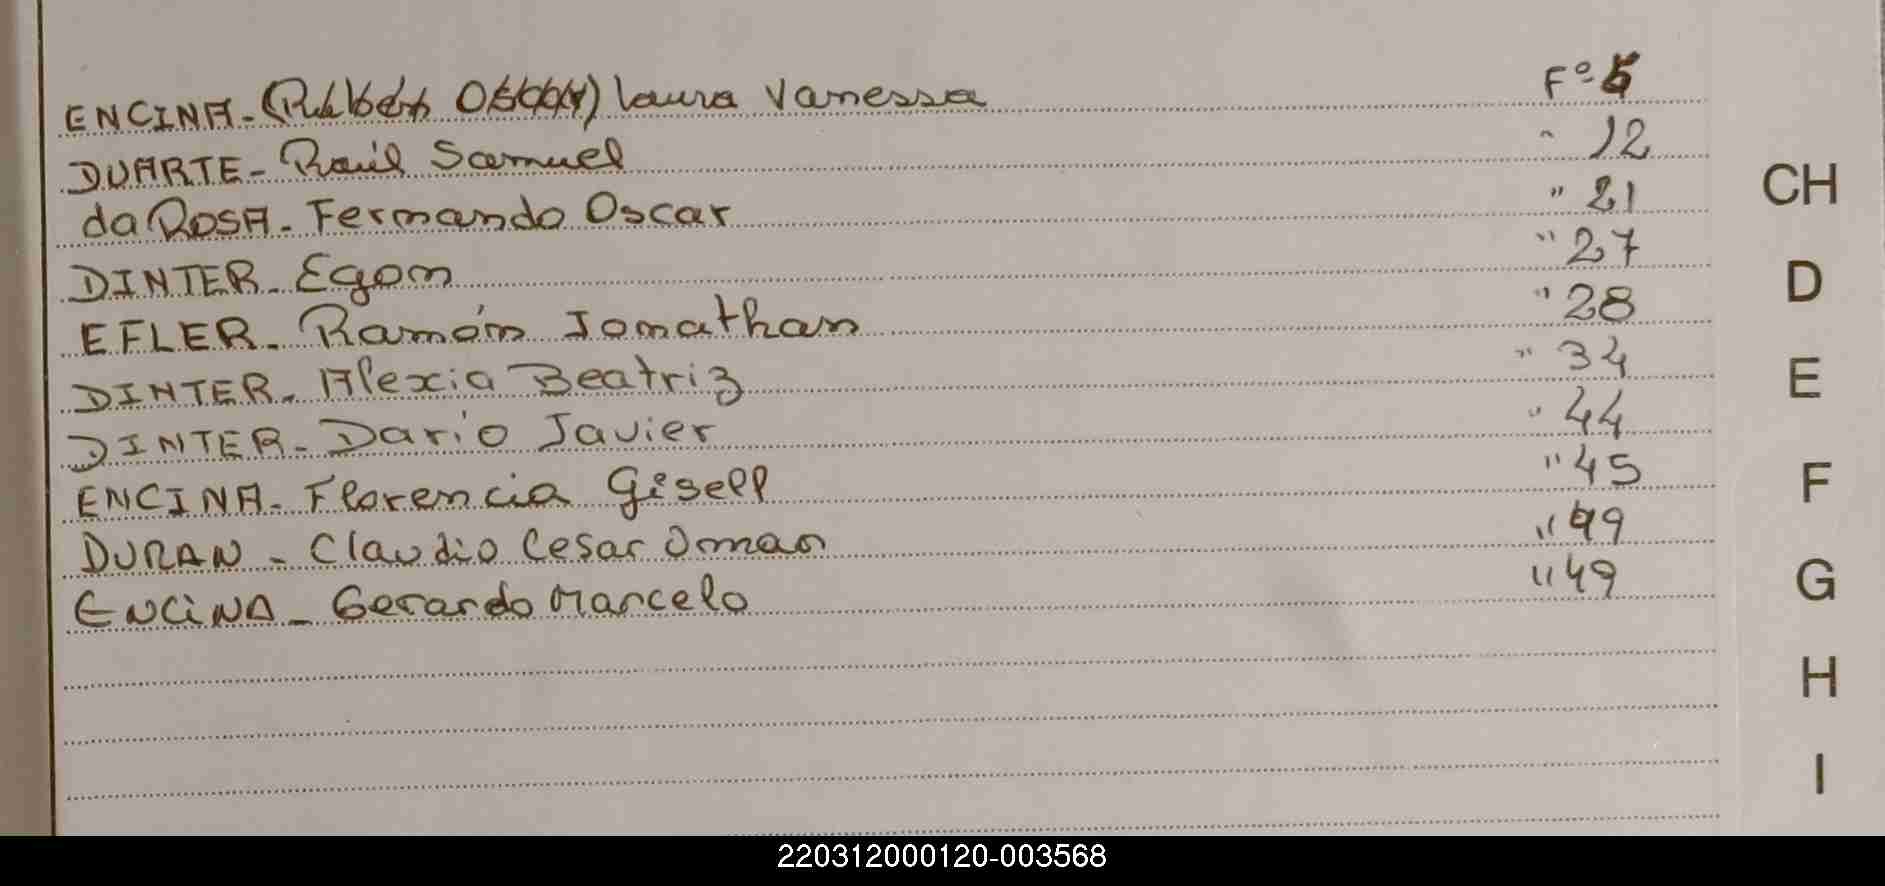 ENCINA- (Rubén Oscar) Laura Vanessa Fº 5
DUARTE- Raúl Samuel " 12
da ROSA- Fernando Oscar " 21
DINTER- Egon " 27
EFLER- Ramón Jonathan " 28
DINTER- Alexia Beatriz " 34
DINTER- Dario Javier " 44
ENCINA- Florencia Gisell " 45
DURAN - Claudio Cesar Oman " 49
ENCINA - Gerardo Marcelo " 49
CH
D
E
F
G
H
I
220312000120-003568